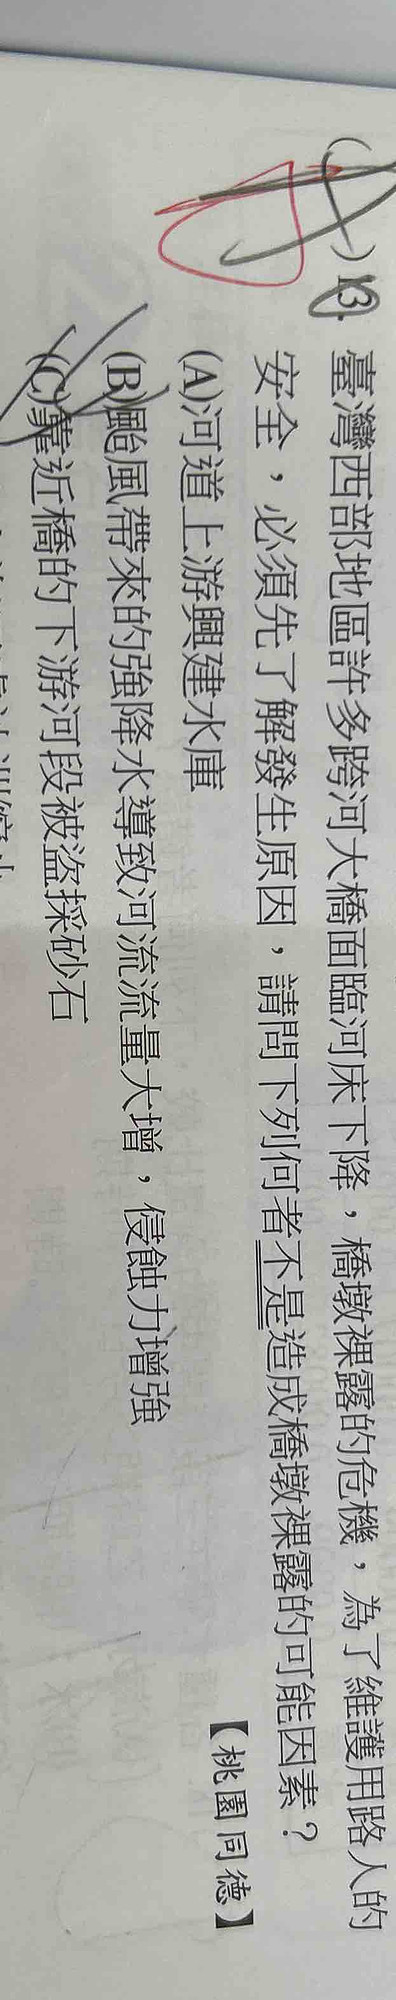 ( )13. 臺灣西部地區許多跨河大橋面臨河床下降，橋墩裸露的危機，為了維護用路人的
安全，必須先了解發生原因，請問下列何者不是造成橋墩裸露的可能因素？
【桃園同德】
(A)河道上游興建水庫
(B)颱風帶來的強降水導致河流流量大增，侵蝕力增強
(C)靠近橋的下游河段被盜採砂石